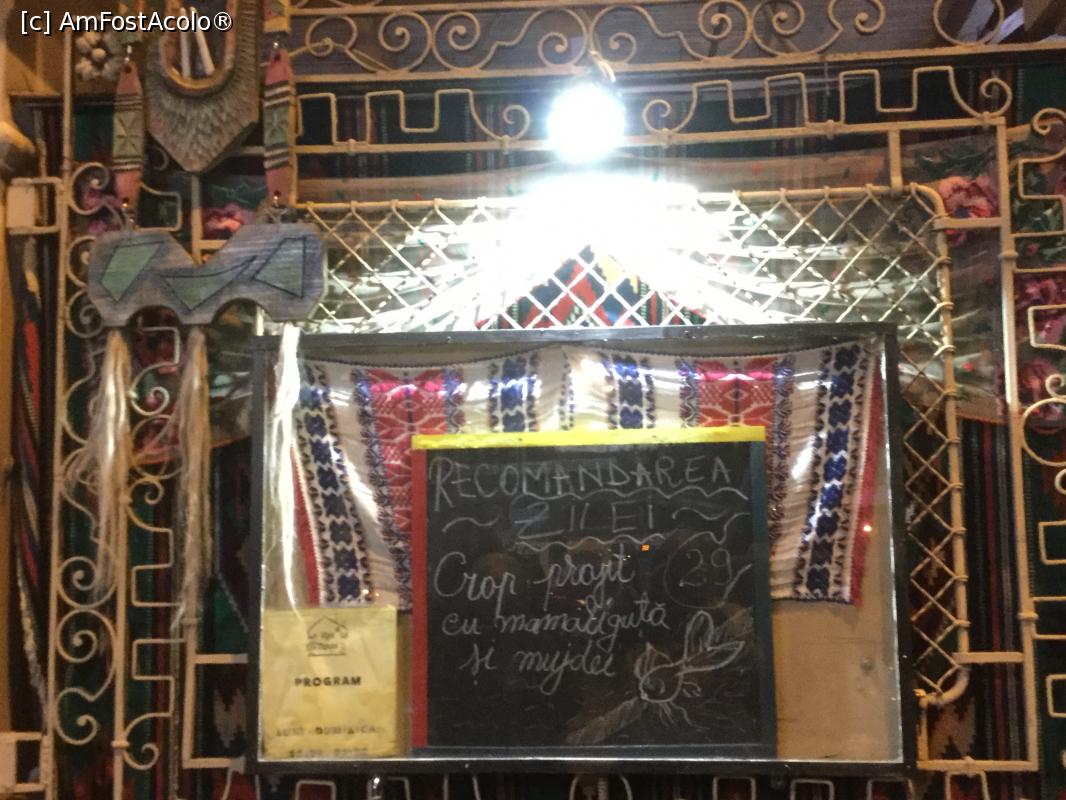 [c] AmFostAcolo®
RECOMANDAREA
ZILEI
Crap prajit 29
cu mamaliguță
și mujdei
PROGRAM
LUNI - DUMINICA: